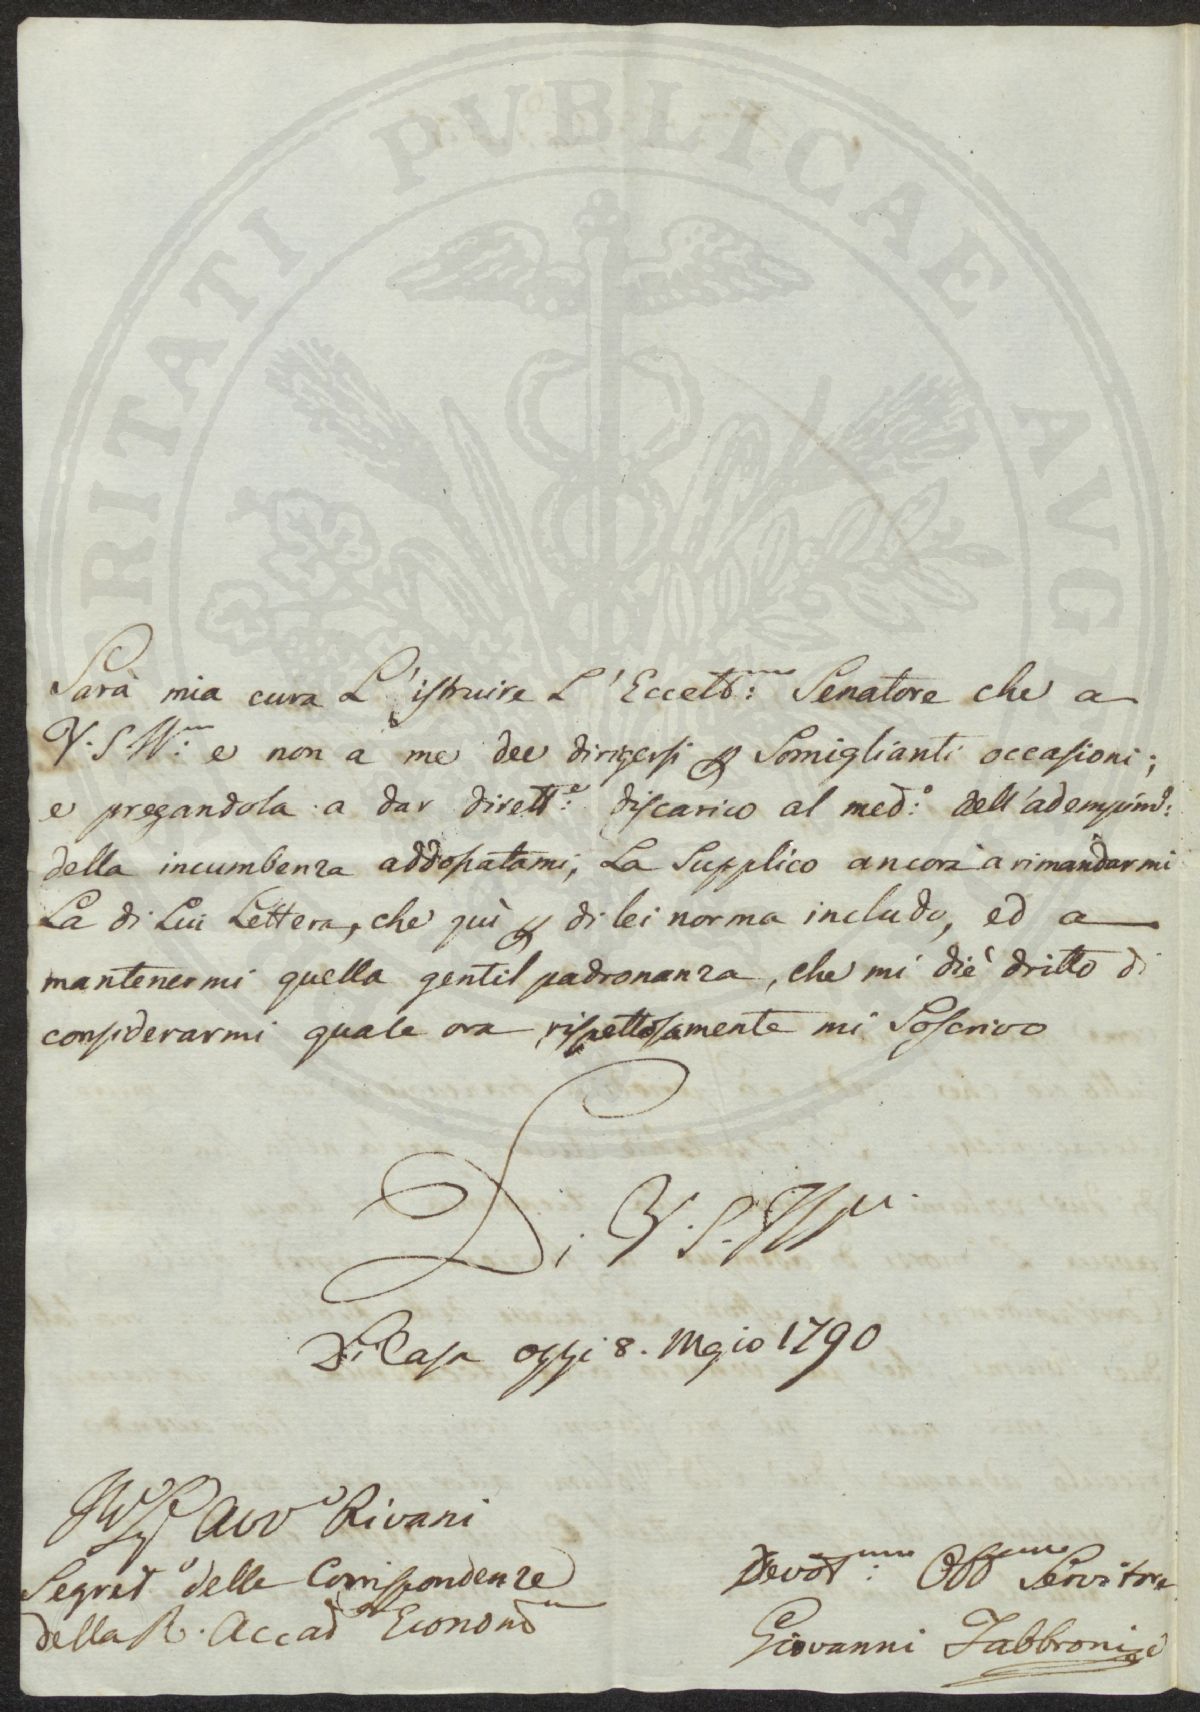 PROSPERITATI PUBLICAE AUG
Sarà mia cura L'istruire L'Eccell:mo Senatore che a
V.S. Ill:ma e non a me dee dirigersi p Somiglianti occasioni;
e pregandola a dar dirett:e discarico al med:o dell'adempim:
della incumbenza addossatami, La Supplico ancora a rimandarmi
La di Lui Lettera, che quì p di lei norma includo, ed a
mantenermi quella gentil padronanza, che mi diè dritto di
considerarmi quale ora rispettosamente mi Soscrivo
Di V.S. Ill
Di Casa oggi 8. Mgio 1790
Sig Avvo Rivani
Segret.o delle Corrispondenze
della R. Accad Econom
Devot:mo Obb:mo Servitore
Giovanni Fabbroni